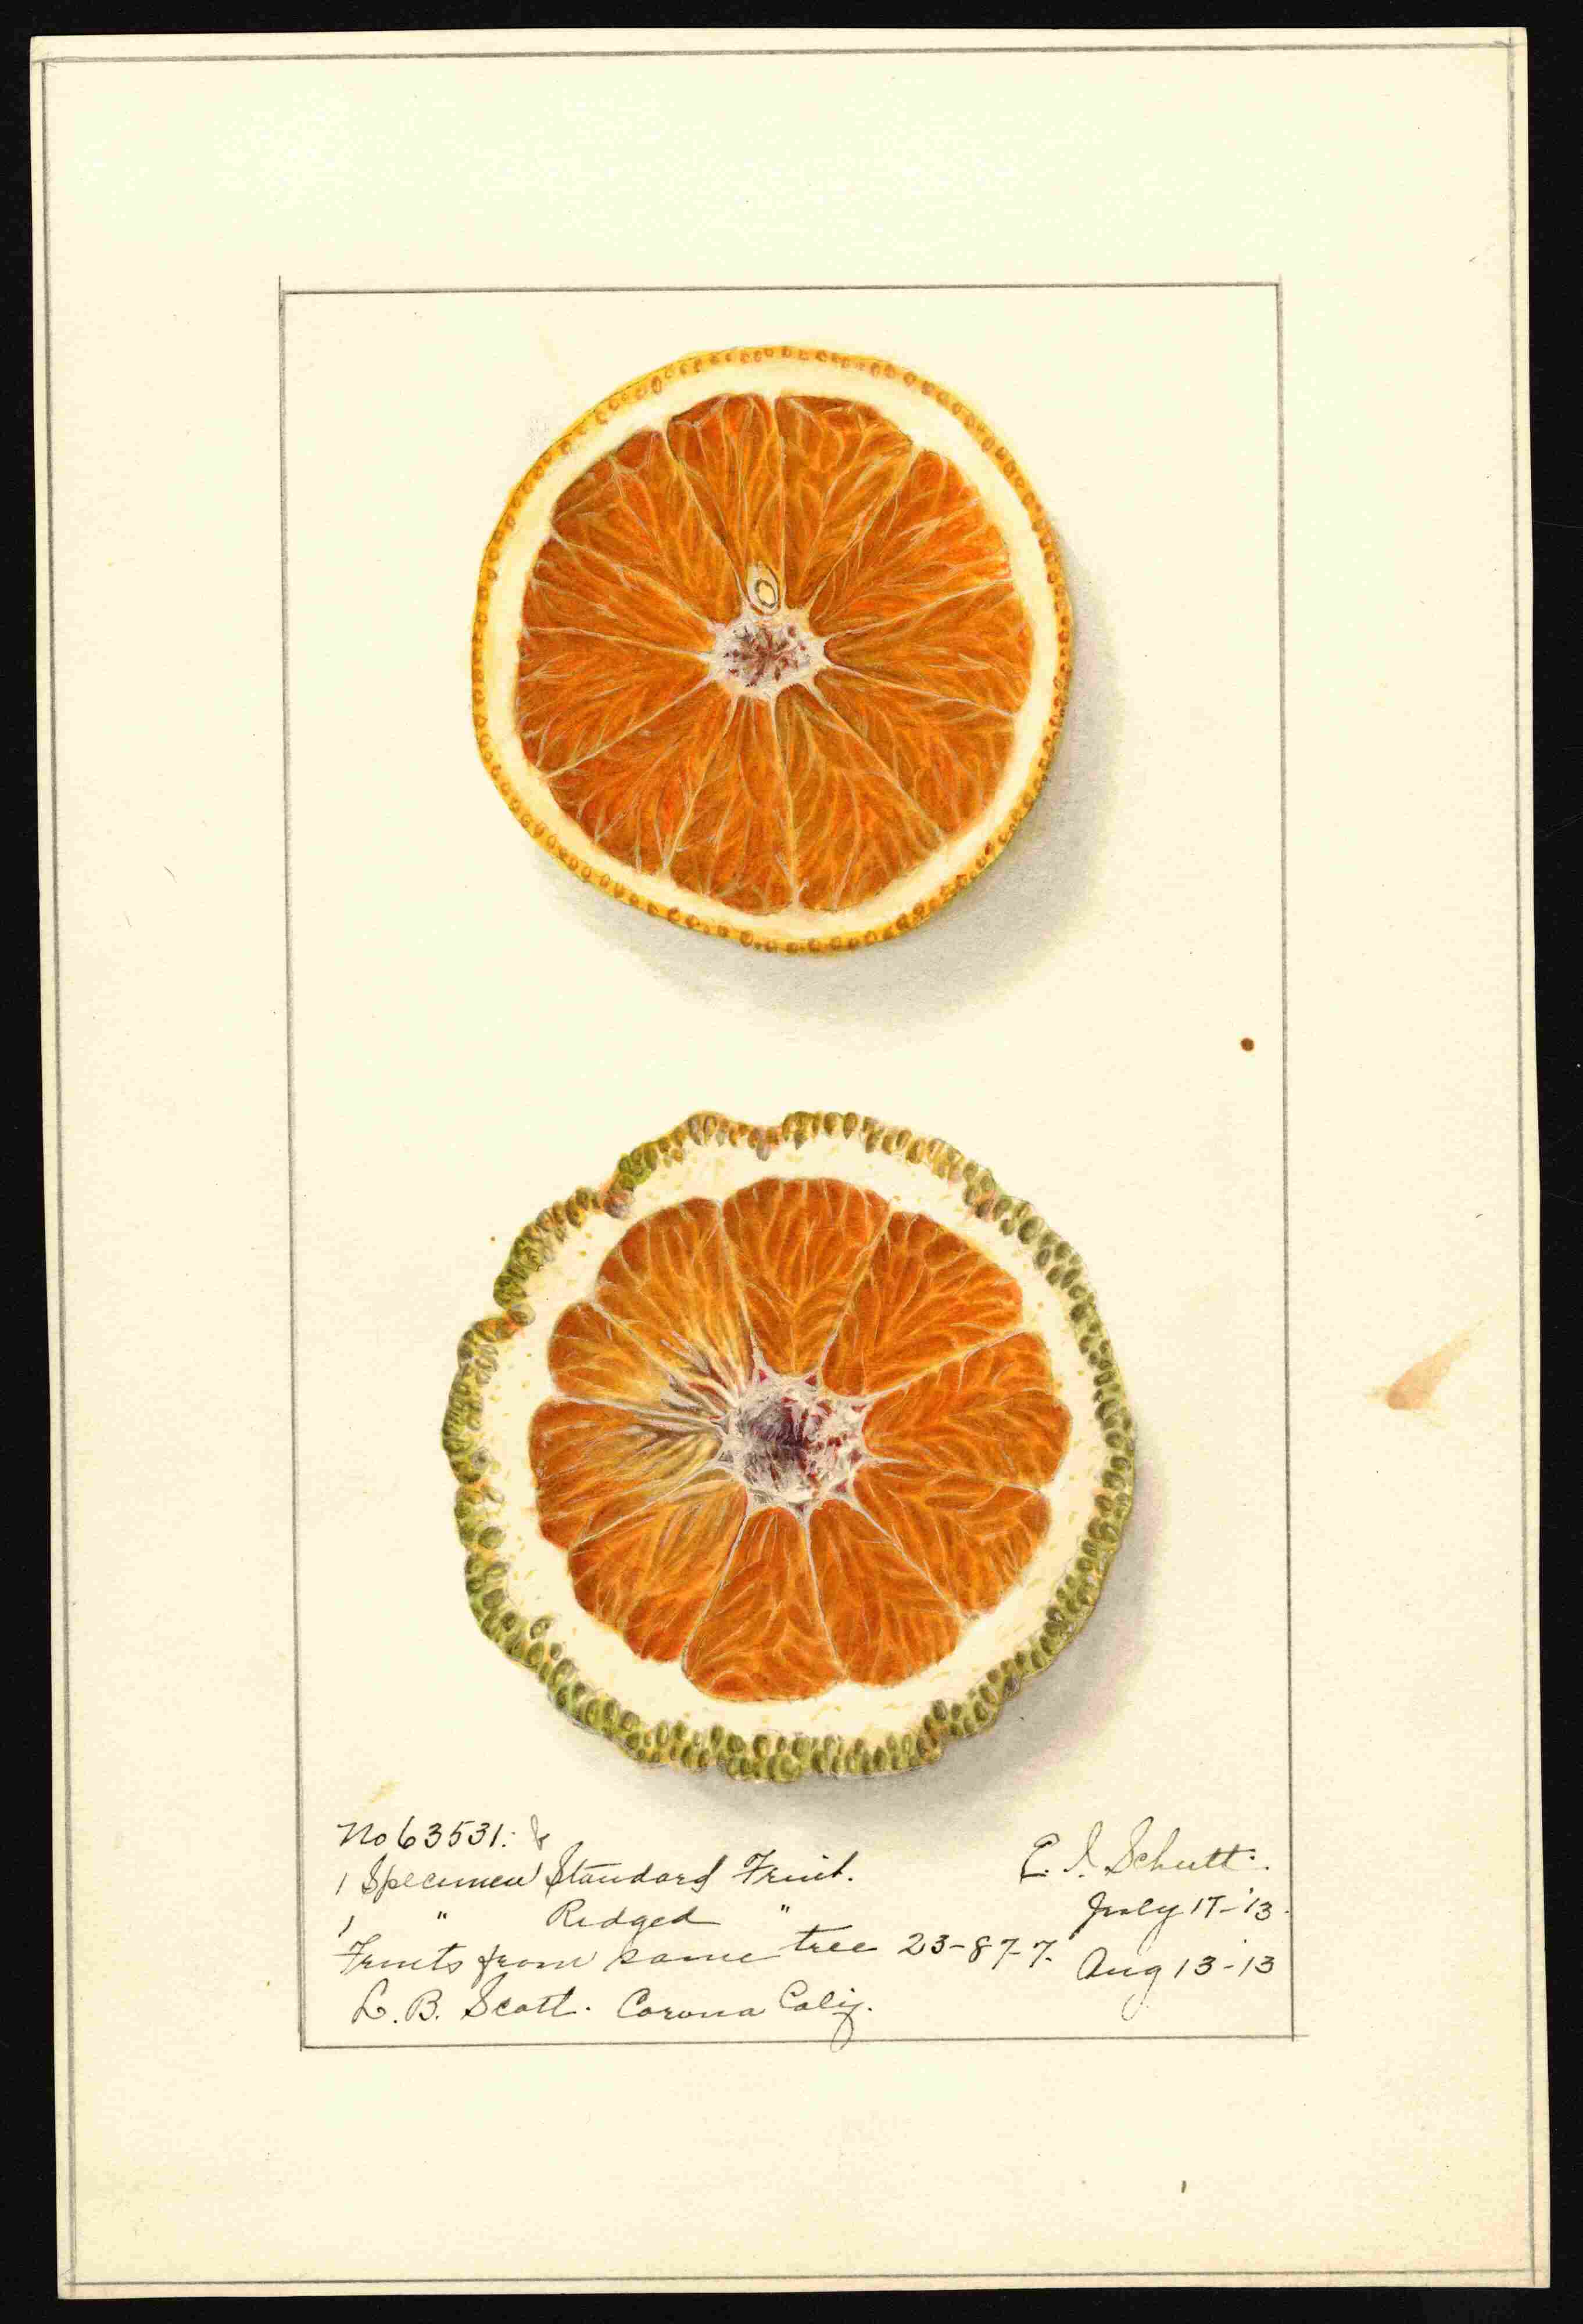 No 63531.
1 Specimen Standard Fruit.
1 " Ridged "
Fruits from same tree 23-87-7.
L. B. Scott. Corona Calif.
E. I. Schutt.
July 17-'13.
Aug 13-'13